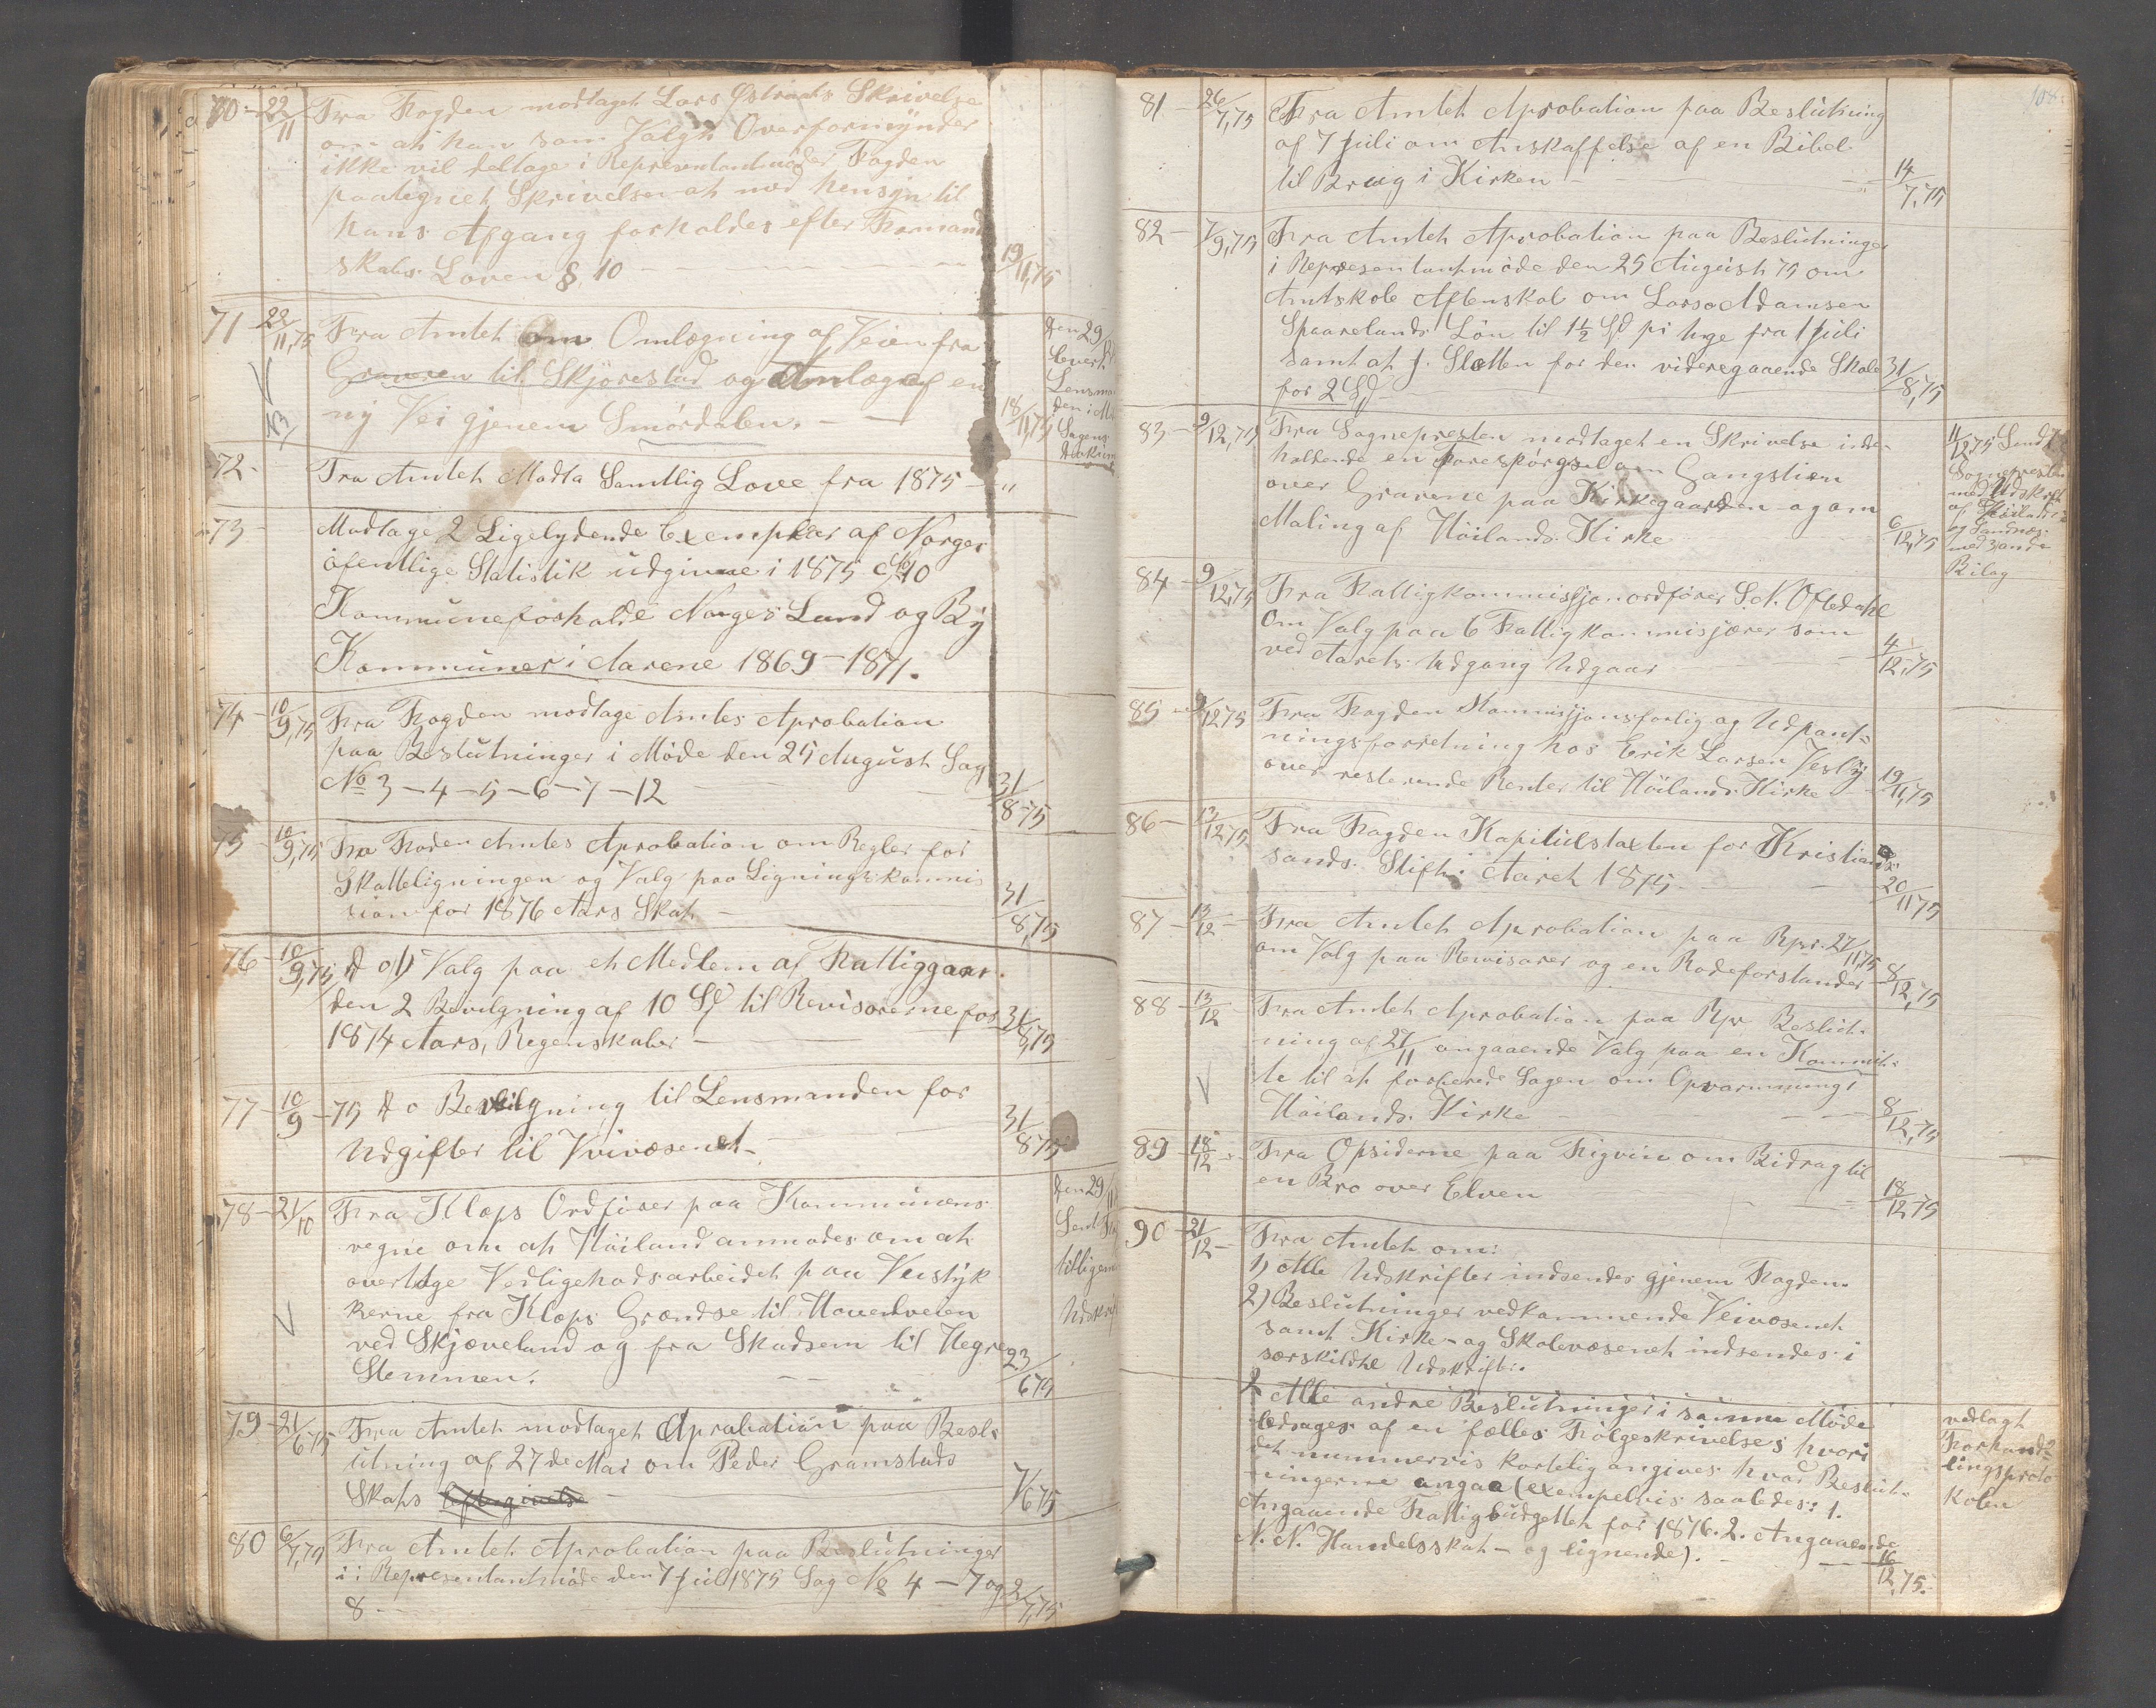 70 - 22/11 Fra Fogden modtaget Lars Østraats Skrivelse
om at han som Valgt Overformynder
ikke vil deltage i Representantmøder Fogden
paategnet Skrivelsen at med hensyn til
hans Afgang forholdes efter Formand
skabs Loven § 10 - 19/11,75
71 - 22/11,75 Fra Amtet om Omlægning af Veien fra
Graveren til Skjørestad og Anlæg af en
ny Vei gjenem Smørdalen. - 18/11,75
den 29/
Lensm
den i
Sagens
Dokum
72 - Fra Amtet Modta Samtlig Love fra 1875 - "
73 - Modtage 2 Ligelydende Exemplar af Norges
ofentlige Statistik udgivne i 1875 C No 10
Kommuneforholde Norges Land og By
Kommuner i Aarene 1869 - 1871.
74 - 10/9,75 Fra Fogden modtage Amtes Aprobation
paa Beslutninger i Møde den 25 August Sag
No 3 - 4 - 5 - 6 - 7 - 12 - 31/8-75
75 - 10/9,75 Fra Foden Amtes Aprobation om Regler for
Skatteligningen og Valg paa Ligningskommis
sion for 1876 Aars Skat - 31/8,75
76 - 10/9,75 do 1) Valg paa et Medlem af Fattiggaar
den 2 Bevilgning af 10 Sp til Revisorerne for
1874 Aars, Regenskaber - 31/8,75
77 - 10/9 - 75 do Bevilgning til Lensmanden for
Udgifter til Vrivæsenet - 31/875
78 - 21/10 Fra Klæps Ordfører paa Kommunens
vegne om at Høiland anmodes om at
overtage Vedligehodsarbeidet paa Veistyk
kerne fra Klæps Grændse til Hovedveien
ved Skjæveland og fra Skadsem til Hegre
Stemmen. - 23/675
den 29/11
Sent Fo
tilligem
Udskrif
79 - 21/675 Fra Amtet modtaget Aprobation paa Besl-
utning af 27de Mai om Peder Gramstads
Skats - 7/675
80 6/7,75 Fra Amtet Aprobation paa Beslutninger
i Representantmøde den 7 Juli 1875 Sag No 4 - 7 og
8 - 2/7,75
108
81 - 26/7,75 Fra Amtet Aprobation paa Beslutning
af 7 Juli om Anskaffelse af en Bibel
til Brug i Kirken - 14/7,75
82 - 7/9,75 Fra Amtet Aprobation paa Beslutninger
i Represen tantmøde den 25 August 75 om
Amtskole Aftenskol om Lars Adamsen
Spaarelands Løn til 1½ Sp pr uge fra 1 Juli
samt at J. Sletten for den videregaaende Skole
for 2 Sp - 31/8,75
83 - 9/12,75 Fra Sognepresten modtaget en Skrivelse inde-
holdende en Forespørgsel om Gangstien
over Gravene paa Kirkegaarden og om
Maling af Høilands Kirke 6/12,75
11/12 75 Sendt
Sognepresten
med Udskrift
af Høilands
og Sandnes
med 3 andre
Bilag
84 - 9/12,75 Fra Fattigkommissjonordfører S. N. Oftedahl
Om Valg paa 6 Fattigkommisjærer som
ved Aarets Udgang Udgaar - 4/12,75
85 - 9/1275 Fra Fogden Kommissjonsforlig og Udpant-
ningsforretning hos Erik Larsen Vesly
over resterende Renter til Høilands Kirke - 19/11,75
86 - 13/12 75 Fra Fogden Kapitulstaxten for Kristian-
sands Stift i Aaret 1875. - 20/1175
87 - 13/12 - Fra Amtet Aprobation paa Rpr. 27/11,75
om Valg paa Revisorer og en Rodeforstander - 8/12,75
88 - 13/12 - Fra Amtet Aprobation paa Rpr Beslut-
ning af 27/11 angaaende Valg paa en Kommit-
te til at forberede Sagen om Opvarmning i
Høilands Kirke - 8/12,75
89 - 18/12 - Fra Opsiderne paa Figvin om Bidrag til
en Bro over Elven - 18/1275
90 - 21/12 - Fra Amtet om:
1) Alle Udskrifter indsendes gjenem Fogden.
2) Beslutninger vedkommende Veivæsenet
samt Kirke- og Skolevæsenet indsendes i
særskildte Udskrifter.
Alle andre Beslutninger i samme Møde
ledsages af en fælles Følgeskrivelse, hvori
det nummervis kortelig angives hvad Beslut-
ningerne angaa (exempelvis saaledes: 1.
Angaaende Fattigbudgettet for 1876. 2. Angaaende
N. N. Handelsskat - og lignende). - 16/12,75.
vedlagt
Forhand-
lingsproto
kolen